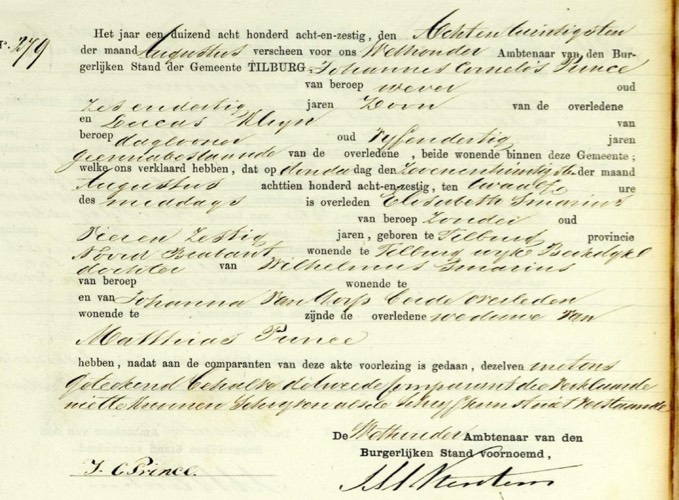 Nr. 279
Het jaar een duizend acht honderd acht-en-zestig, den Achtentwintigsten
der maand Augustus verscheen voor ons Wethouder Ambtenaar van den Bur-
gerlijken Stand der Gemeente TILBURG. Johannes Cornelis Prince
van beroep wever oud
Zesendertig jaren Zoon van de overledene
en Lucas Kluyn van
beroep daglooner oud Vyfendertig jaren
geennabestaande van de overledene, beide wonende binnen deze Gemeente;
welke ons verklaard hebben, dat op dinsdag den Zevenentwintigste der maand
Augustus achttien honderd acht-en-zestig, ten twaalf ure
des middags is overleden Elisabeth Smarius
van beroep Zonder oud
Vier en Zestig jaren, geboren te Tilburg provincie
Noord Brabant wonende te Tilburg wijk
dochter van Wilhelmus Smarius
van beroep wonende te
en van Johanna Van Dorp beide overleden
wonende te zijnde de overledene weduwe van
Matthias Prince
hebben, nadat aan de comparanten van deze akte voorlezing is gedaan, dezelven metons
geteekend behalve de tweede Comparant die verklaarde
niet te kunnen Schryven als de Schryfkunst niet verstaande
De Wethouder Ambtenaar van den
Burgerlijken Stand voornoemd,
J. C Prince.